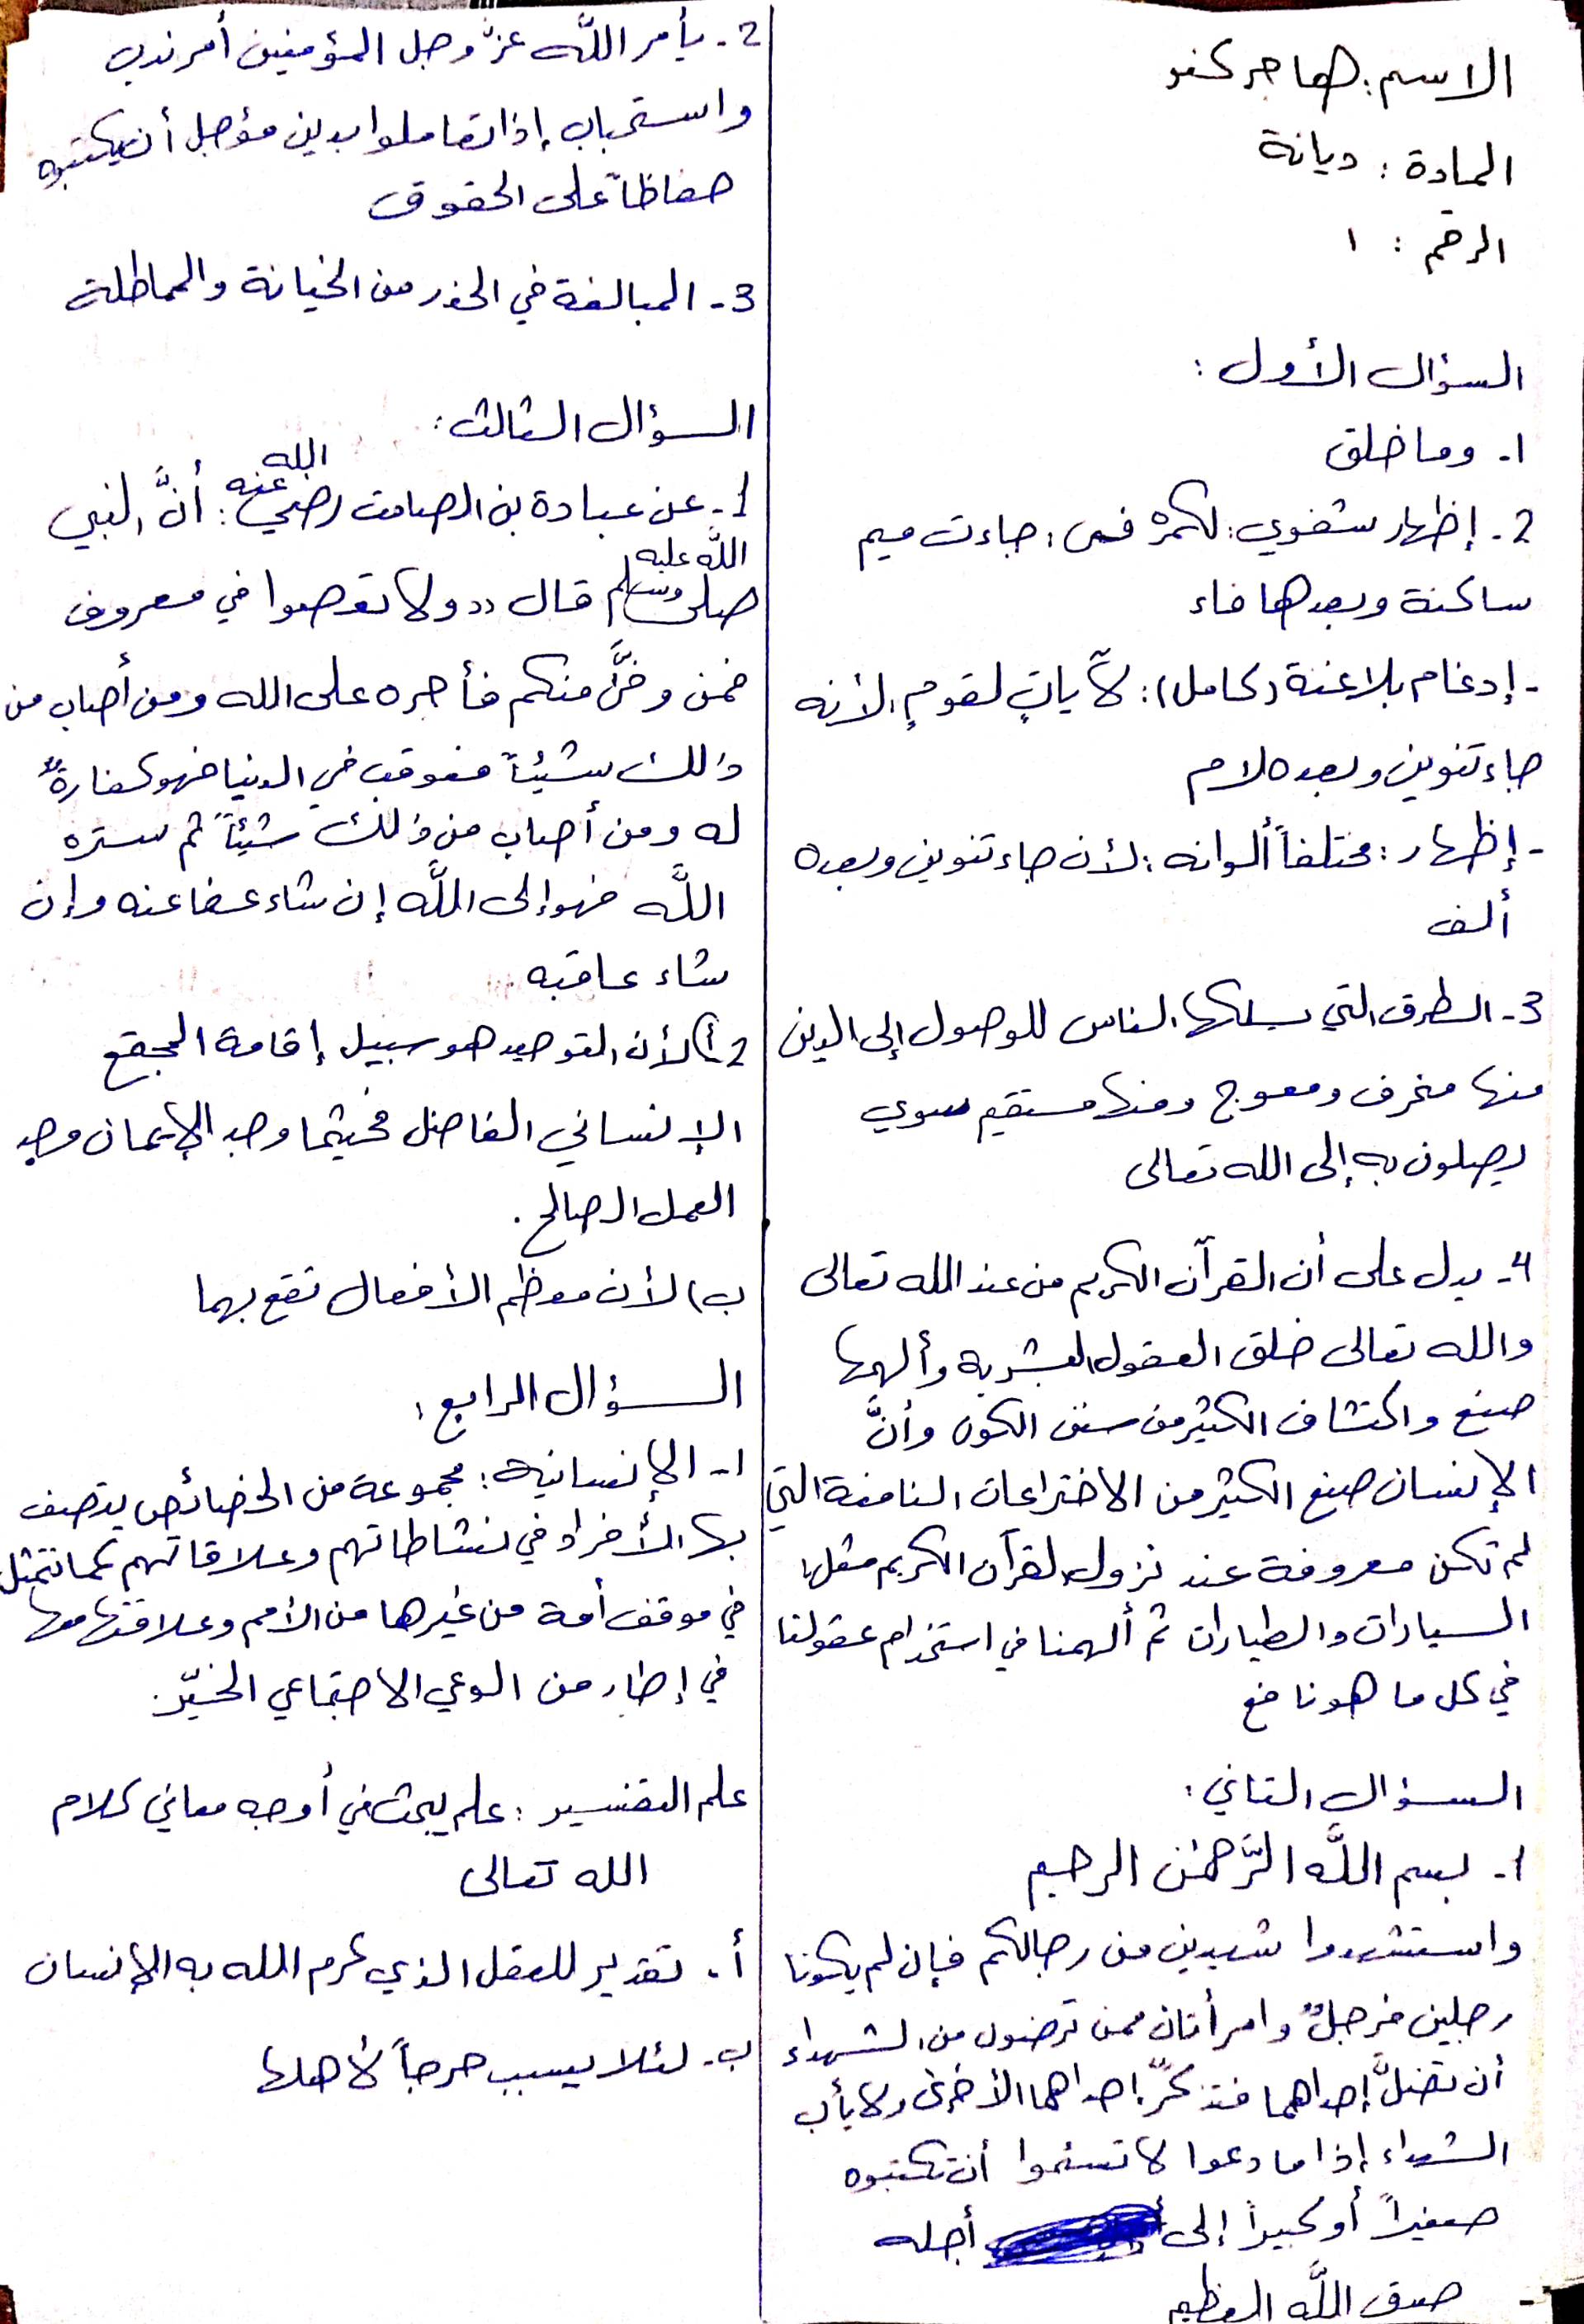 الاسم: هاجر كنو
المادة: ديانة
الرقم: ١
السؤال الأول:
١- وما خلق
2- إظهار شفوي: لكم فى: جاءت ميم
ساكنة وبعدها فاء
- إدغام بلا غنة (كامل): لآياتٍ لقومٍ: لأنه
جاء تنوين وبعده لام
- إظهار: مختلفاً ألوانه: لأن جاء تنوين وبعده
ألف
3- الطرق التي يسلكها الناس للوصول إلى الدين
منها منحرف ومعوج ومنها مستقيم سوي
يصلون به إلى الله تعالى
4- يدل على أن القرآن الكريم من عند الله تعالى
والله تعالى خلق العقول البشرية وألهمها
صنع واكتشاف الكثير من سنن الكون وأنَّ
الإنسان صنع الكثير من الاختراعات النافعة التي
لم تكن معروفة عند نزول القرآن الكريم مثل:
السيارات والطيارات ثم ألهمنا في استخدام عقولنا
في كل ما هو نافع
السؤال الثاني:
1- بسم اللَّه الرَّحمٰن الرحيم
واستشهدوا شهيدين من رجالكم فإن لم يكونا
رجلين فرجلٌ وامرأتان ممن ترضون من الشهداء
أن تضلَّ إحداهما فتذكرَّ إحداهما الأخرى ولا يأب
الشهداء إذا ما دعوا لا تسئموا أن تكتبوه
صغيراً أو كبيراً إلى أجله
صدق اللَّه العظيم
2- يأمر اللَّه عزَّ وجل المؤمنين أمر ندب
واستحباب إذا تعاملوا بدين مؤجل أن يكتبوه
حفاظاً على الحقوق
3- المبالغة في الحذر من الخيانة والمماطلة
السؤال الثالث:
1- عن عبادة بن الصامت رضي الله عنه: أنَّ النبي
صلى اللَّه عليه وسلم قال ((ولا تعصوا في معروف
فمن وفىَّ منكم فأجره على الله ومن أصاب من
ذلك شيئاً فعوقب في الدنيا فهو كفارةٌ
له ومن أصاب من ذلك شيئاً ثم ستره
اللَّه فهو إلى اللَّه إن شاء عفا عنه وإن
شاء عاقبه.
2- أ) لأن التوحيد هو سبيل إقامة المجتمع
الإنساني الفاضل فحيثما وجد الإيمان وجد
العمل الصالح.
ب) لأن معظم الأفعال تقع بهما
السؤال الرابع:
١- الإنسانية: مجموعة من الخصائص يتصف
بها الأفراد في نشاطاتهم وعلاقاتهم كما تتمثل
في موقف أمة من غيرها من الأمم وعلاقتها معها
في إطار من الوعي الاجتماعي الخيّر.
علم التفسير: علم يبحث في أوجه معاني كلام
الله تعالى
أ- تقدير للعقل الذي كرم الله به الإنسان
ب- لئلا يسبب حرجاً لأهلها